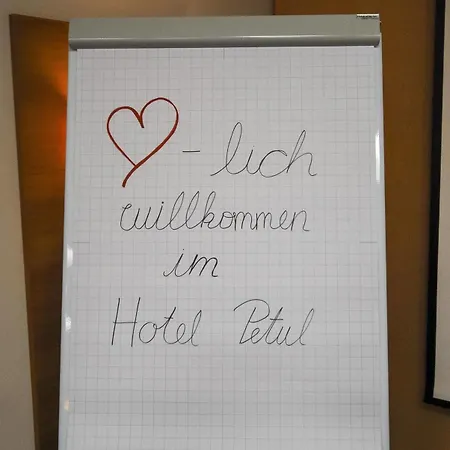 ♥-lich
willkommen
im
Hotel Petul